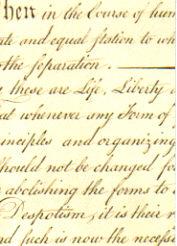 hen in the Course of hum
ate and equal station to wh
the separation.
these are Life, Liberty
at whenever any Form of
inciples and organizing
hould not be changed fo
abolishing the forms to
Despotism, it is their r
nd such is now the necess